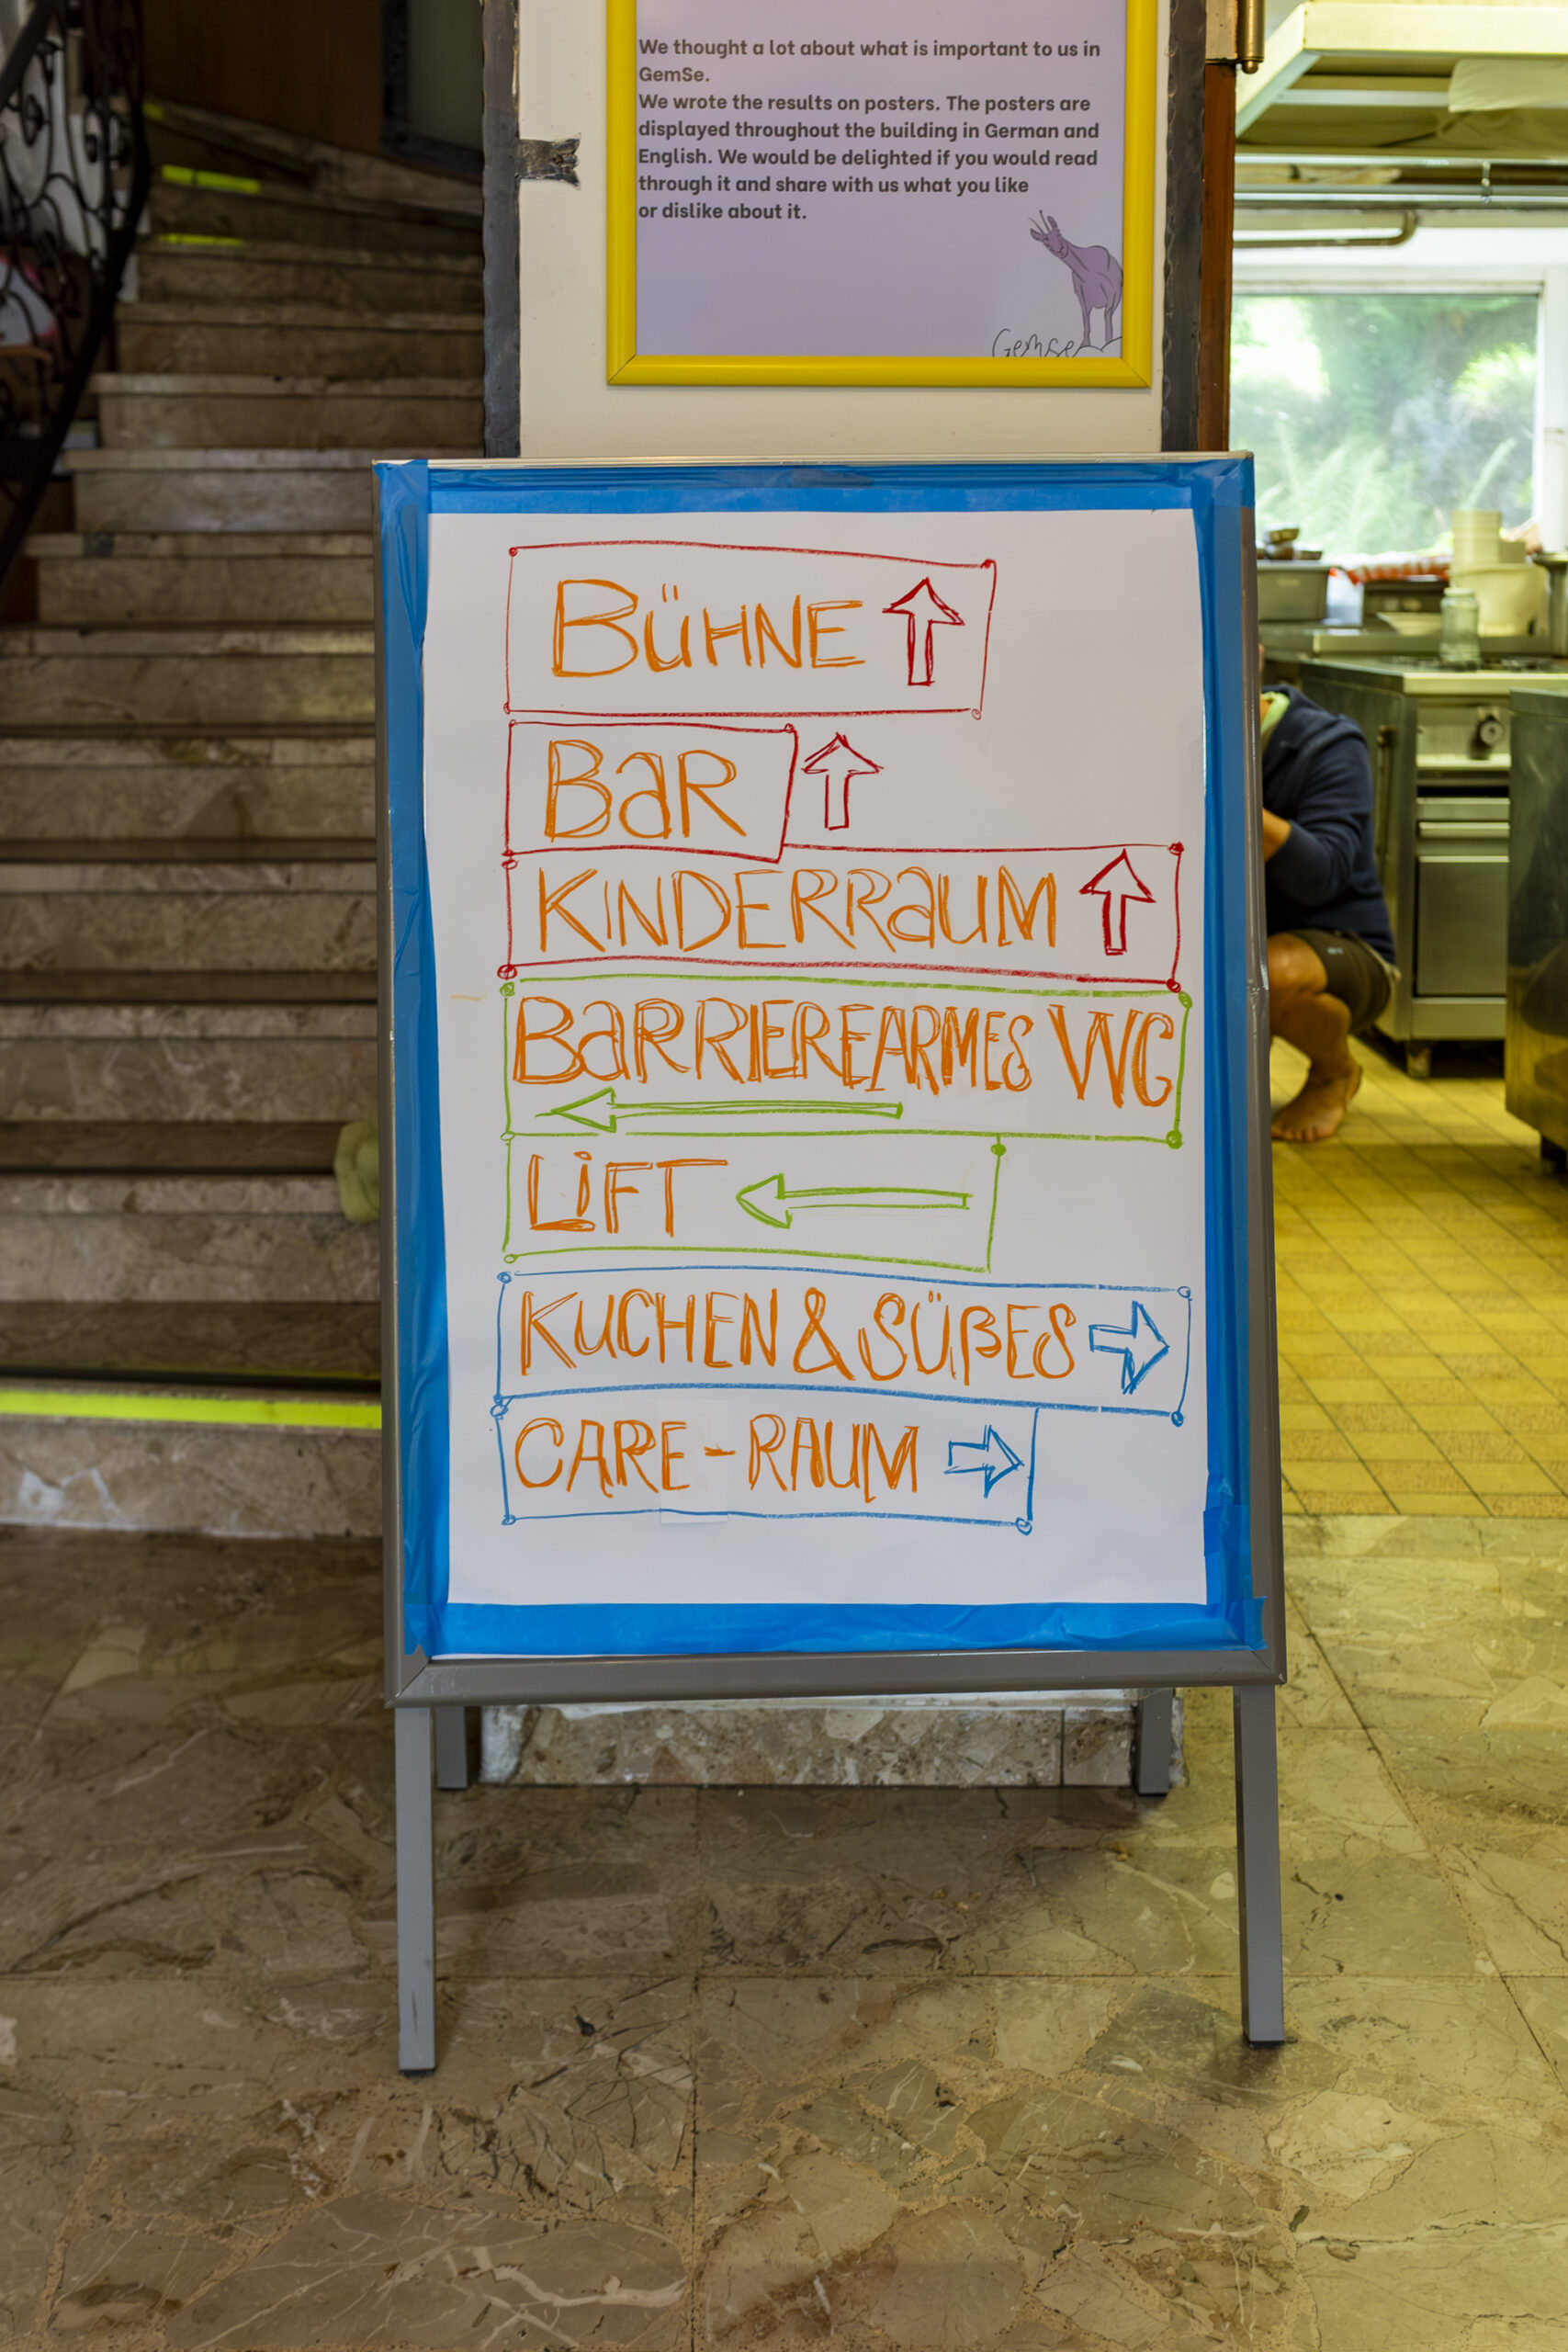 We thought a lot about what is important to us in
GemSe.
We wrote the results on posters. The posters are
displayed throughout the building in German and
English. We would be delighted if you would read
through it and share with us what you like
or dislike about it.
GemSe
BÜHNE
BaR
KINDERRaUM
BaRRIEREARMES WC
LiFT
KUCHEN & SÜßES
CARE-RAUM